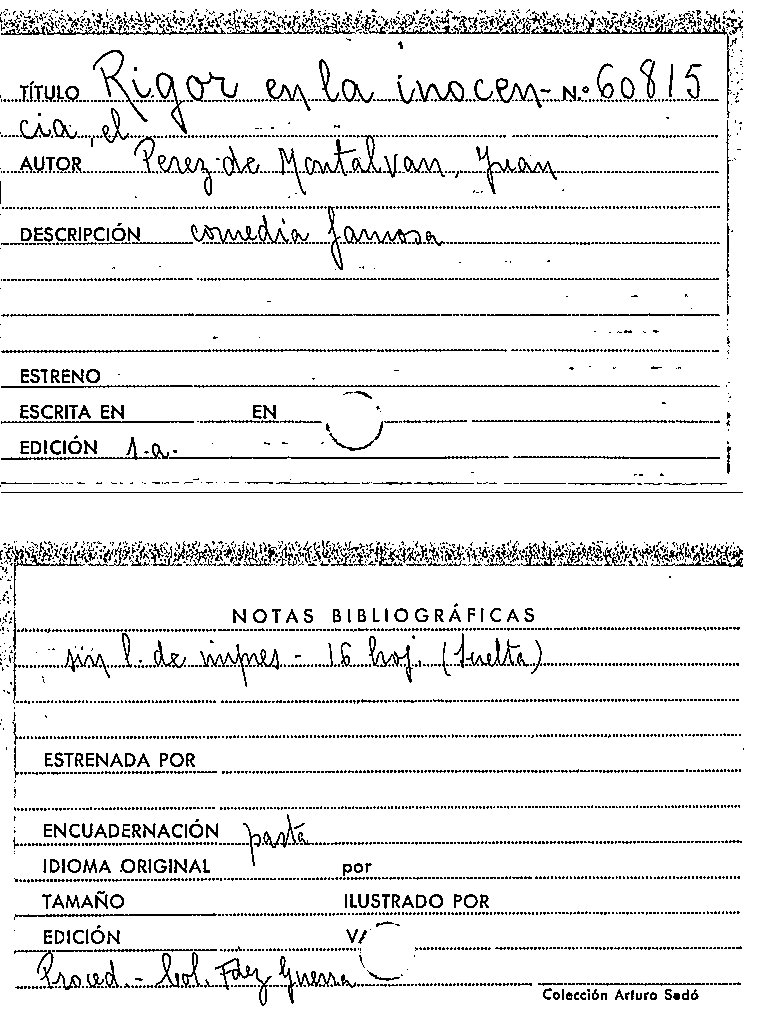 TÍTULO Rigor en la inocen- N.º 60815
cia, el
AUTOR Perez de Montalvan, Juan
DESCRIPCIÓN comedia famosa
ESTRENO
ESCRITA EN EN
EDICIÓN s.a.
NOTAS BIBLIOGRÁFICAS
sin l. de impres - 16 hoj. (suelta)
ESTRENADA POR
ENCUADERNACIÓN pasta
IDIOMA ORIGINAL por
TAMAÑO ILUSTRADO POR
EDICIÓN V/
Proced. - Col. Fdez Guerra
Colección Arturo Sedó